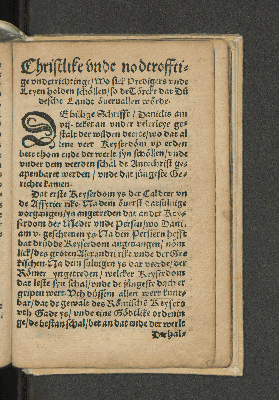 Christlike vnde nodtrofftige
vnderrichtinge / Wo sick Predigers vnde
Leyen holden schöllen / so de Törcke dat Düdesche
Landt öueruallen wörde.
DE hillige Schrifft / Danielis am
vij. teket an vnder velerleye gestalt
der wilden deerte / wo dat allene
veer Keyserdom vp erden
beth thom ende der werlt syn schöllen / vnde
vnder dem veerden schal de Antechrist geapenbaret
werden / vnde dat jüngeste Gerichte
kamen.
Dat erste Keyserdom ys der Caldeer vnde
Assyrier rike. Na dem
vorgangen / ys angetreden dat ander Keyserdom
der Meder vnde Persier / wo Daniel
am v. geschreuen ys. Na den Persiern hefft
dat drüdde Keyserdom angeuangen / nömlick /
des groten Alexandri rike vnde der Grekischen.
Na dem ys dat veerde / der
Römer yngetreden / welcker Keyserdom
dat leste syn schal / vnde de jüngeste dach ergripen
wert. Vth düssem allen wert kuntbar /
dat de gewalt des Römischen Keysers
vth Gade ys / vnde eine Gödtlike ordeninge /
de bestan schal / bet an dat ende der werlt
Derhal-